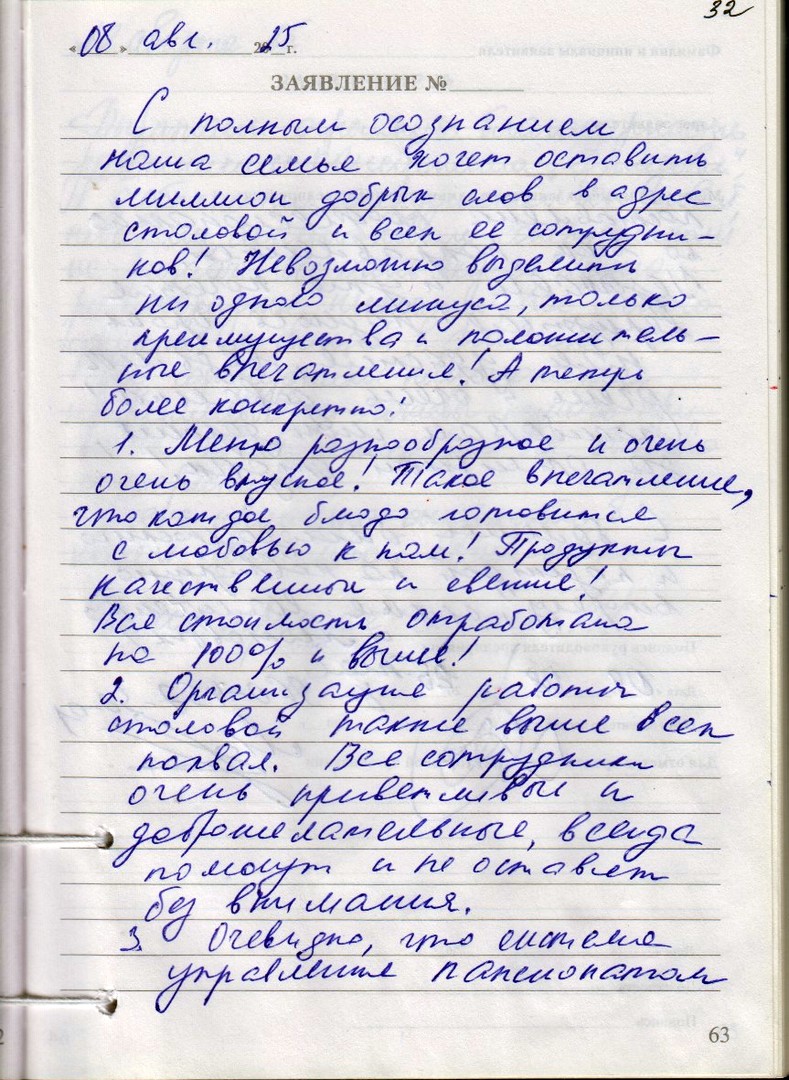 32
«08» авг. 2025 г.
ЗАЯВЛЕНИЕ №
С полным осознанием
наша семья хочет оставить
миллион добрых слов в адрес
столовой и всех ее сотрудни-
ков! Невозможно выделить
ни одного минуса, только
преимущества и положитель-
ные впечатления! А теперь
более конкретно!
1. Меню разнообразное и очень
очень вкусное! Такое впечатление,
что каждое блюдо готовится
с любовью к нам! Продукты
качественные и свежие!
Вся стоимость отработана
на 100% и выше!
2. Организация работы
столовой также выше всех
похвал. Все сотрудники
очень приветливые и
доброжелательные, всегда
помогут и не оставят
без внимания.
3. Очевидно, что система
управления пансионатом
63